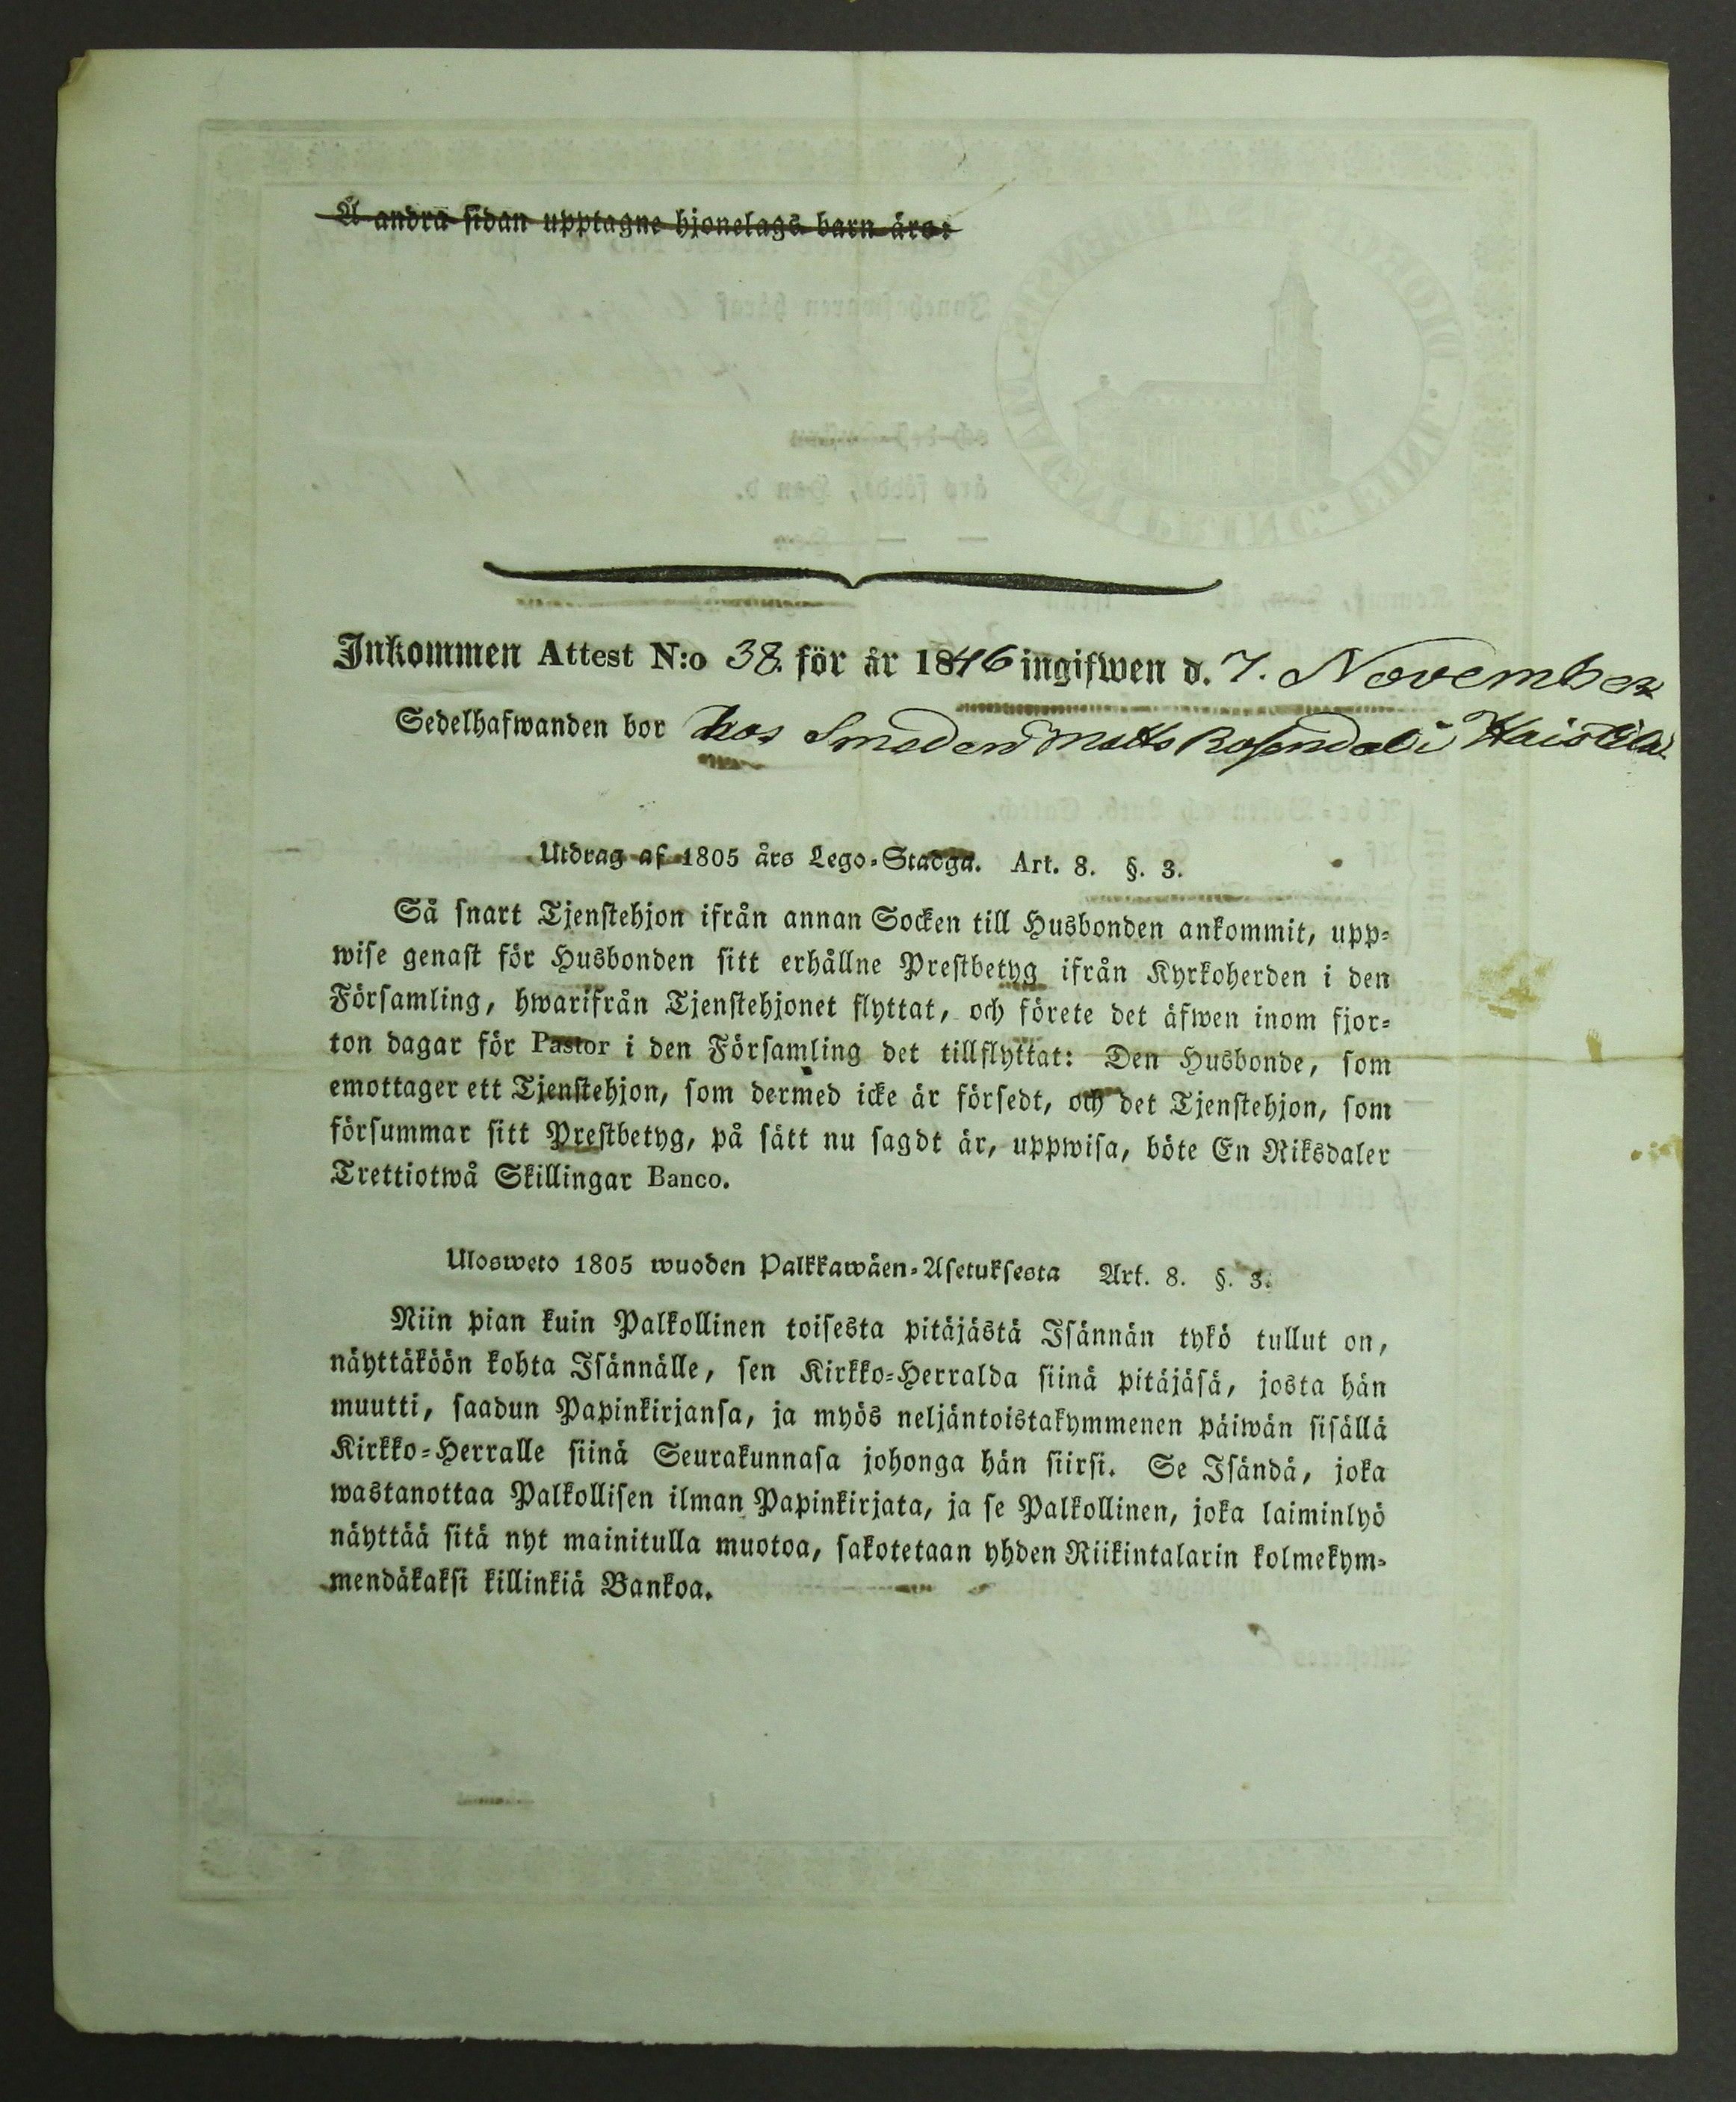 Å andra sidan upptagne hjonelags barn äro:
Inkommen Attest N:o 38. för år 1846 ingifwen d. 7. November
Sedelhafwanden bor hos Smeden Matts Rosendal i Haistila.
Utdrag af 1805 års Lego-Stadga. Art. 8. §. 3.
Så snart Tjenstehjon ifrån annan Socken till Husbonden ankommit, upp-
wise genast för Husbonden sitt erhållne Prestbetyg ifrån Kyrkoherden i den
Församling, hwarifrån Tjenstehjonet flyttat, och förete det äfwen inom fjor-
ton dagar för Pastor i den Församling det tillflyttat: Den Husbonde, som
emottager ett Tjenstehjon, som dermed icke är försedt, och det Tjenstehjon, som
försummar sitt Prestbetyg, på sätt nu sagdt är, uppwisa, böte En Riksdaler
Trettiotwå Skillingar Banco.
Ulosweto 1805 wuoden Palkkawäen-Asetuksesta Art. 8. §. 3.
Niin pian kuin Palkollinen toisesta pitäjästä Isännän tykö tullut on,
näyttäköön kohta Isännälle, sen Kirkko-Herralda siinä pitäjäsä, josta hän
muutti, saadun Papinkirjansa, ja myös neljäntoistakymmenen päiwän sisällä
Kirkko-Herralle siinä Seurakunnasa johonga hän siirsi. Se Isändä, joka
wastanottaa Palkollisen ilman Papinkirjata, ja se Palkollinen, joka laiminlyö
näyttää sitä nyt mainitulla muotoa, sakotetaan yhden Riikintalarin kolmekym-
mendäkaksi killinkiä Bankoa.